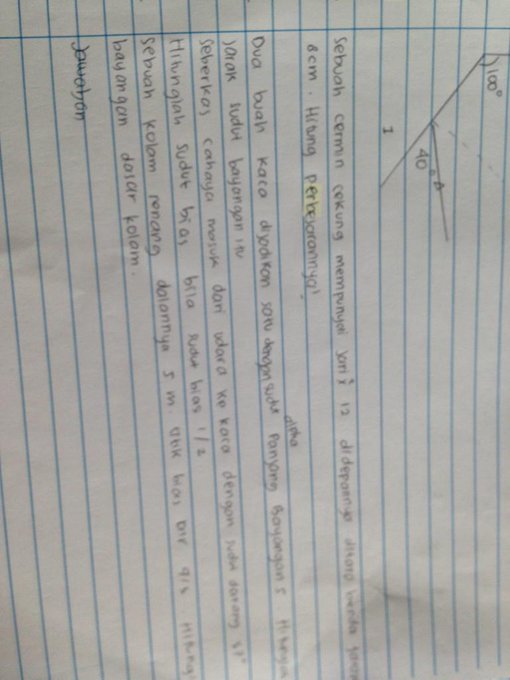 100°
40° A
1
Sebuah cermin cekung mempunyai jari² 12 didepannya ditaro benda jarak
8cm. Hitung perbesarannya!
Dua buah kaca dijadikan satu dengan sudut alpha Panjang Bayangan 5 Hitunglah
jarak sudut bayangan itu
seberkas cahaya masuk dari udara ke kaca dengan sudut datang
Hitunglah sudut bias bila sudut bias 1/2
Sebuah kolam renang dalamnya 5 m. bias air Hitung
bayangan dasar kolam.
Jawaban